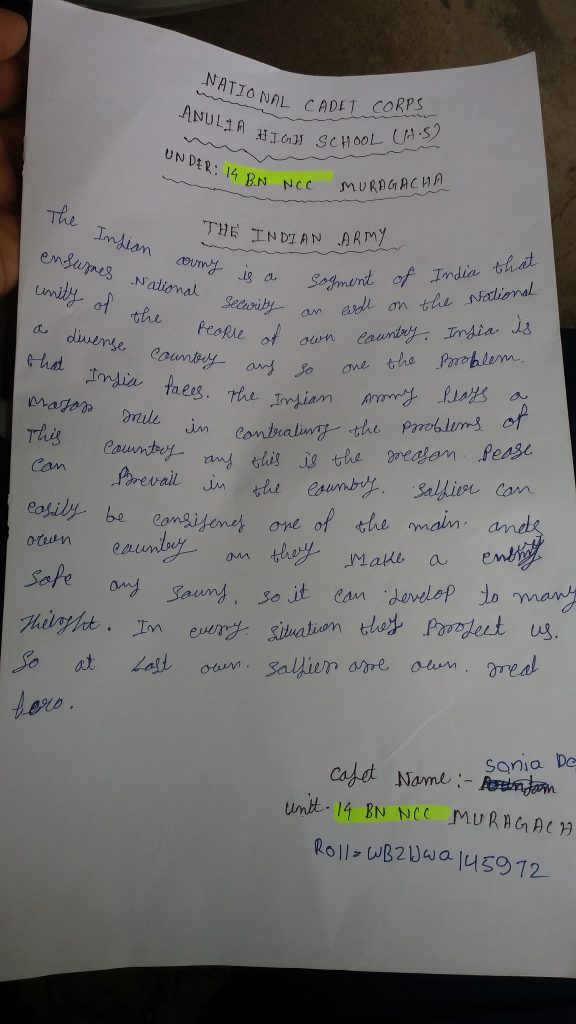 NATIONAL CADET CORPS
ANULIA HIGH SCHOOL (H.S)
UNDER: 14 BN NCC MURAGACHA
THE INDIAN ARMY
The Indian army is a sogment of India that
ensures National Security an on the National
unity of the People of own country. India is
a diverse country and so one the Problem.
that India faces. The Indian Army Plays a
Major rule in contraling the Problems of
This country and this is the reason. Pease
can Prevail in the country. Soldier can
easily be considened one of the main.
own country on they Make a
safe and saund. so it can develop to many
Height. In every situation they Protect us.
So at Last own. soldier are own. real
hero.
Cadet Name :- Sonia
Unit. 14 BN NCC MURAGACH
Roll=